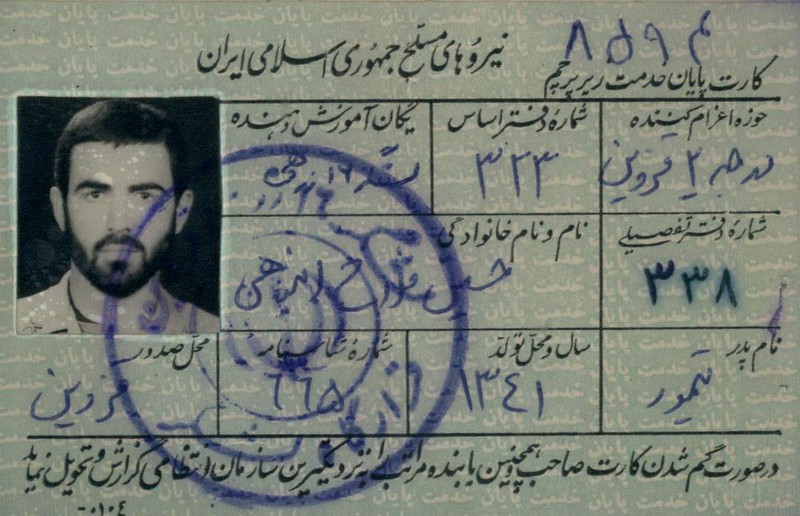 نیروهای مسلح جمهوری اسلامی ایران
۸۵۹۲
کارت پایان خدمت زیر پرچم
حوزه اعزام کننده
شمارهٔ دفتر اساس
یگان آموزش دهنده
قزوین
۳۲۳
شمارهٔ دفتر تفصیلی
نام و نام خانوادگی
۳۳۸
نام پدر
سال و محل تولد
شمارهٔ شناسنامه
محل صدور
تیمور
۱۳۴۱
۶۶۵
قزوین
درصورت گم شدن کارت صاحب و همچنین یابنده مراتب را به نزدیکترین سازمان انتظامی گزارش و تحویل نماید